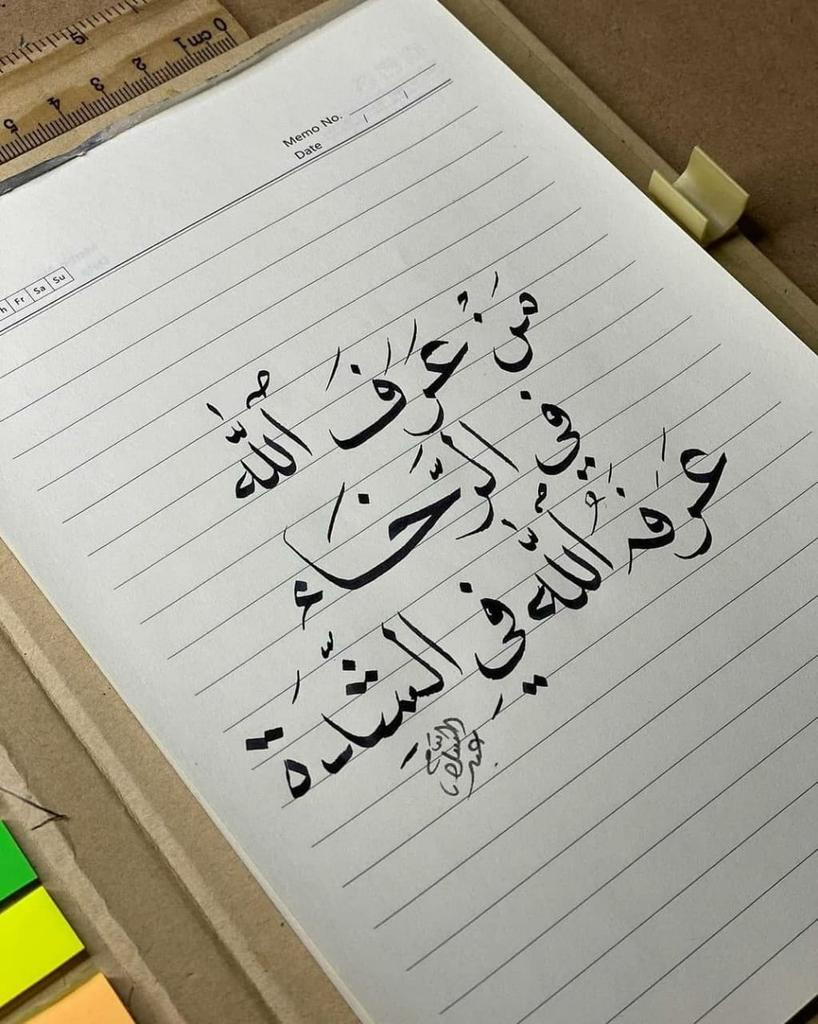 0 1cm 2 3 4 5
5
Memo No.
Date / /
h Fr Sa Su
مَنْ عَرَفَ اللّٰه
في الرَّخَاء
عَرَفَهُ اللّٰه فِي الشِّدَّة